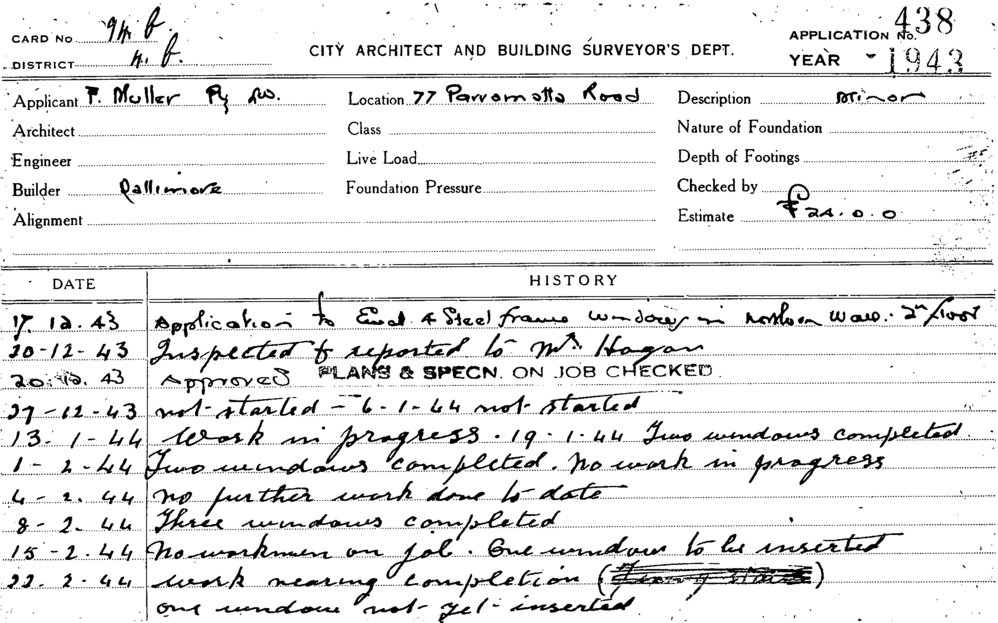 CARD NO 94 B
APPLICATION No. 438
DISTRICT
CITY ARCHITECT AND BUILDING SURVEYOR'S DEPT.
YEAR - 1943
Applicant F. Muller Py
Location 77 Parramatta Road
Description Minor
Architect
Class
Nature of Foundation
Engineer
Live Load
Depth of Footings
Builder Rallimore
Foundation Pressure
Checked by
Alignment
Estimate £24.0.0
DATE
HISTORY
17. 12. 43 Application to 4 Steel frame windows in northern Wall. 2nd floor
20-12-43 Inspected & reported to Mr. Hagan
20. 12. 43 Approved PLANS & SPECN. ON JOB CHECKED
27-12-43 not started - 6-1-44 not started
13-1-44 Work in progress. 19-1-44 Two windows completed.
1-2-44 Two windows completed. No work in progress
4-2.44 no further work done to date
8-2.44 Three windows completed
15-2.44 No workmen on job. One window to be inserted
22. 2-44 work nearing completion ( )
one window not yet inserted